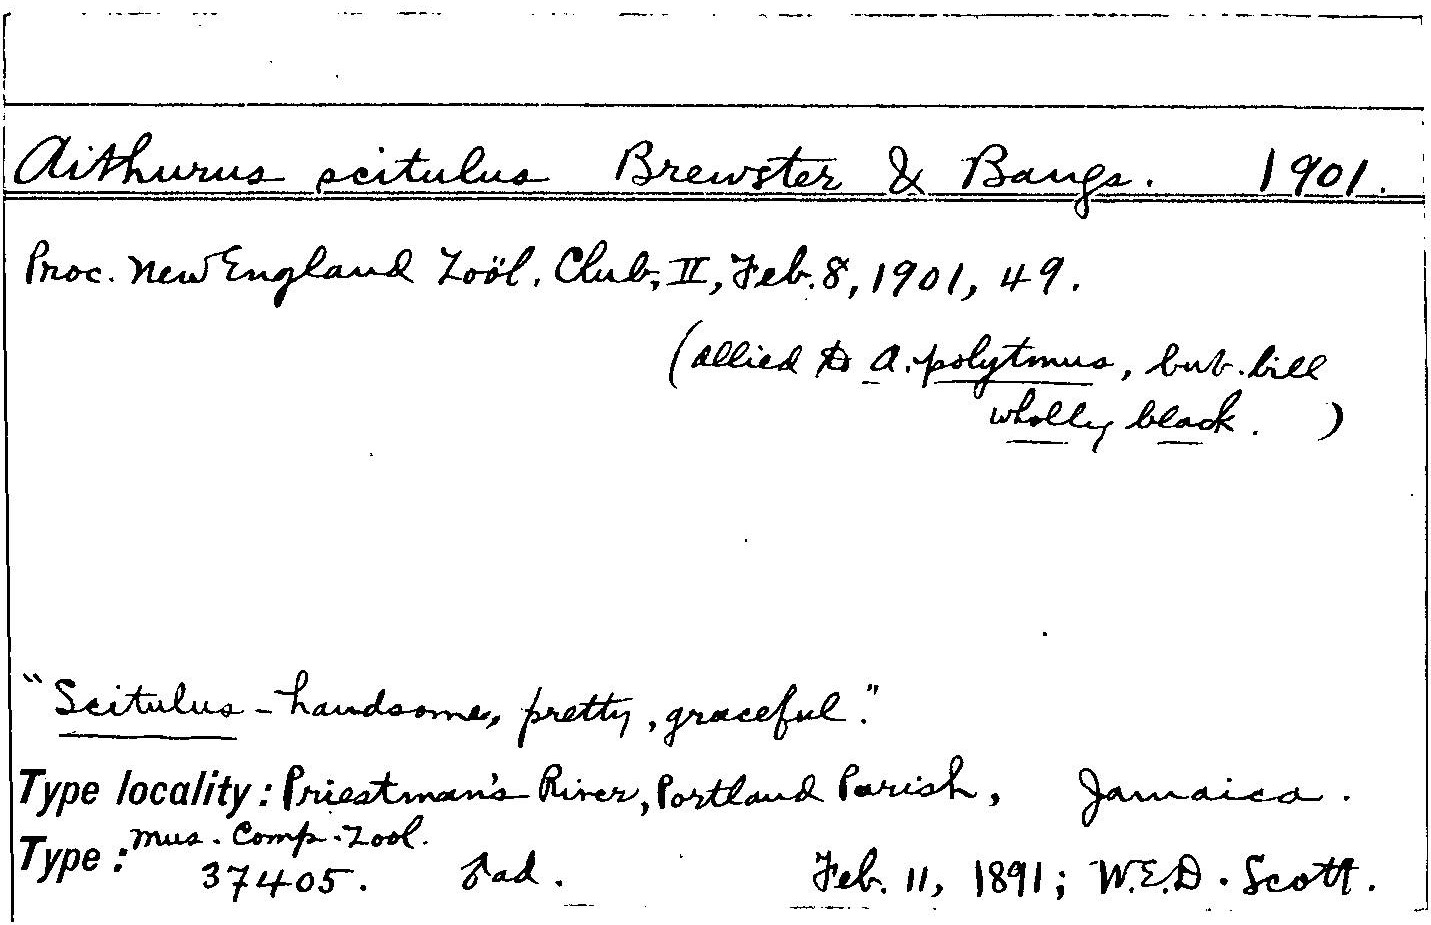 Aithurus scitulus Brewster & Bangs. 1901.
Proc. New England Zoöl. Club, II, Feb. 8, 1901, 49.
(allied to A. polytmus, but bill
wholly black. )
"Scitulus - handsome, pretty, graceful."
Type locality: Priestman's River, Portland Parish, Jamaica.
Mus. Comp. Zool.
Type: 37405. ♂ ad. Feb. 11, 1891; W.E.D. Scott.